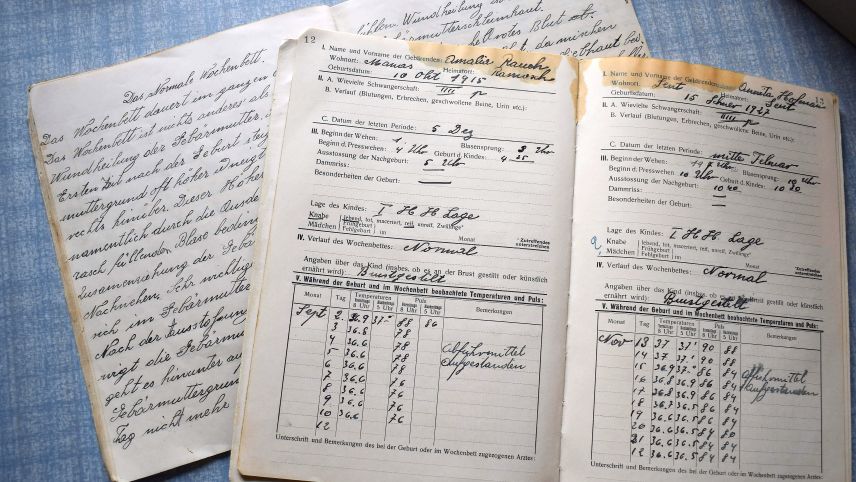 Das Normale Wochenbett.
Das Wochenbett dauert im ganzen
Das Wochenbett ist nichts anderes als
Wundheilung der Gebärmutter.
Ersten Zeit nach der Geburt steig
muttergrund oft höher u neigt
rechts hinüber. Dieser Höher
namentlich durch die Ausde
rasch füllenden Blase beding
Zusammenziehung der Gebär
Nachwehen. Sehr wichtig
rich im Gebärmutter
Nach der Ausstossung
wigt die Gebärmu
geht es hinunter au
Gebärmuttergrun
Tag nicht mehr
Wundheilung
Gebärmutterschleimhaut.
rotes Blut
12
I. Name und Vorname der Gebärenden: Amalia Rauch
Wohnort: Manas Heimatort: Ramosch
Geburtsdatum: 10 Okt 1915
II. A. Wievielte Schwangerschaft: IIII p
B. Verlauf (Blutungen, Erbrechen, geschwollene Beine, Urin etc.):
C. Datum der letzten Periode: 5 Dez
III. Beginn der Wehen: 1. Blasensprung: 2 Uhr
Beginn d. Presswehen 4 Uhr Geburt d. Kindes: 4 25
Ausstossung der Nachgeburt: 5 Uhr
Dammriss: —
Besonderheiten der Geburt: —
Lage des Kindes: I H H Lage
Knabe lebend, tot, maceriert, reif, unreif, Zwillinge*
Mädchen Frühgeburt Fehlgeburt im Monat *Zutreffendes unterstreichen
IV. Verlauf des Wochenbettes: Normal
Angaben über das Kind (insbes. ob es an der Brust gestillt oder künstlich
ernährt wird): Brustgestilt
V. Während der Geburt und im Wochenbett beobachtete Temperaturen und Puls:
Monat Tag Temperaturen Puls Bemerkungen
8 Uhr 5 Uhr 8 Uhr 5 Uhr
Sept 2 36.9 37- 88 86
3 36.8 88
4 36.6 78
5 36.6 78 Abführmittel
6 36.6 78 aufgestanden
7 36.6 76
8 36.6 76
9 36.6 76
10 36.6 76
12
Unterschrift und Bemerkungen des bei der Geburt oder im Wochenbett zugezogenen Arztes:
13
I. Name und Vorname der Gebärenden:
Wohnort: Sent Heimatort: Sent
Geburtsdatum: 15
II. A. Wievielte Schwangerschaft: IIII p
B. Verlauf (Blutungen, Erbrechen, geschwollene Beine, Urin etc.):
C. Datum der letzten Periode: mitte Februar
III. Beginn der Wehen: Blasensprung: 10 Uhr
Beginn d. Presswehen 10 Uhr Geburt d. Kindes: 10 20
Ausstossung der Nachgeburt: 10 40
Dammriss: —
Besonderheiten der Geburt:
Lage des Kindes: I H H Lage
Knabe lebend, tot, maceriert, reif, unreif, Zwillinge*
Mädchen Frühgeburt Fehlgeburt im Monat *Zutreffendes unterstreichen
IV. Verlauf des Wochenbettes: Normal
Angaben über das Kind (insbes. ob es an der Brust gestillt oder künstlich
ernährt wird): Brustgestilt
V. Während der Geburt und im Wochenbett beobachtete Temperaturen und Puls:
Monat Tag Temperaturen Puls Bemerkungen
8 Uhr 5 Uhr 8 Uhr 5 Uhr
Nov 13 37 37' 90 88
14 37 37.' 90 88
15 36.9 37-' 86 84 Abführmittel
16 36.8 36.9 86 84 aufgestanden
17 36.8 36.9 86 84
18 36.7 36.5 86 84
19 36.6 36.5 86 84
20 36.6 36.5 84 80
21 36.6 36.5 84 84
12 36.6 36.5 84 84
Unterschrift und Bemerkungen des bei der Geburt oder im Wochenbett zugezogenen Arztes: